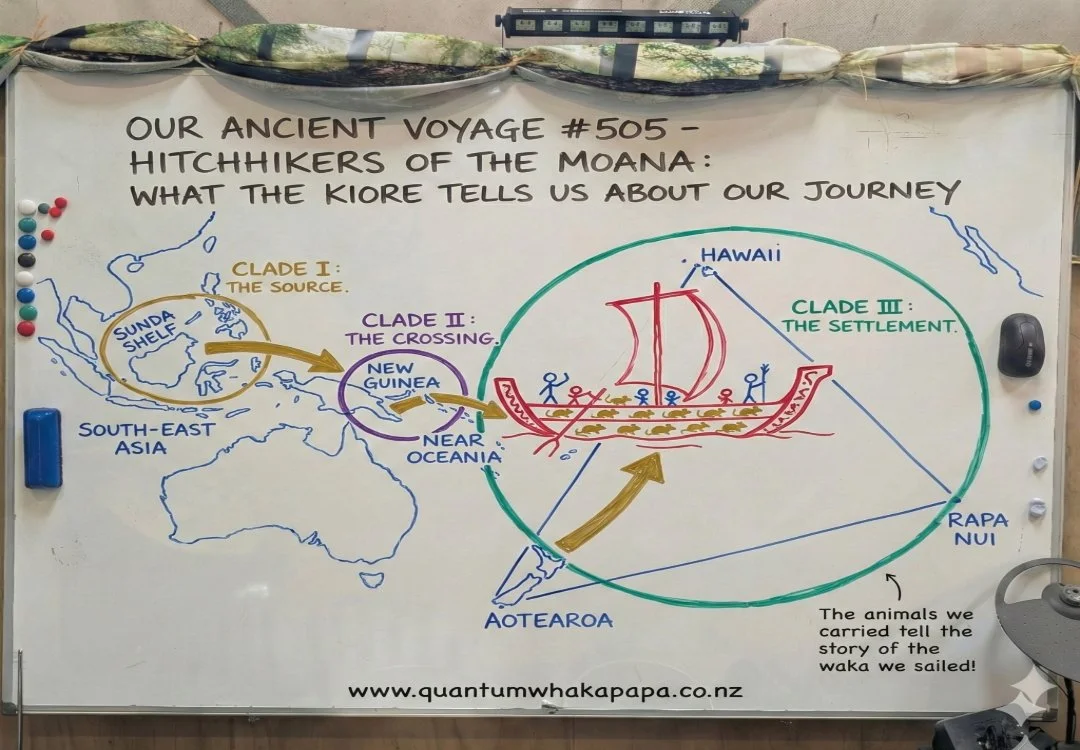 OUR ANCIENT VOYAGE #505 -
HITCHHIKERS OF THE MOANA:
WHAT THE KIORE TELLS US ABOUT OUR JOURNEY
CLADE I:
THE SOURCE.
SUNDA
SHELF
SOUTH-EAST
ASIA
CLADE II:
THE CROSSING.
NEW
GUINEA
NEAR
OCEANIA
HAWAII
CLADE III:
THE SETTLEMENT.
RAPA
NUI
AOTEAROA
The animals we
carried tell the
story of the
waka we sailed!
www.quantumwhakapapa.co.nz